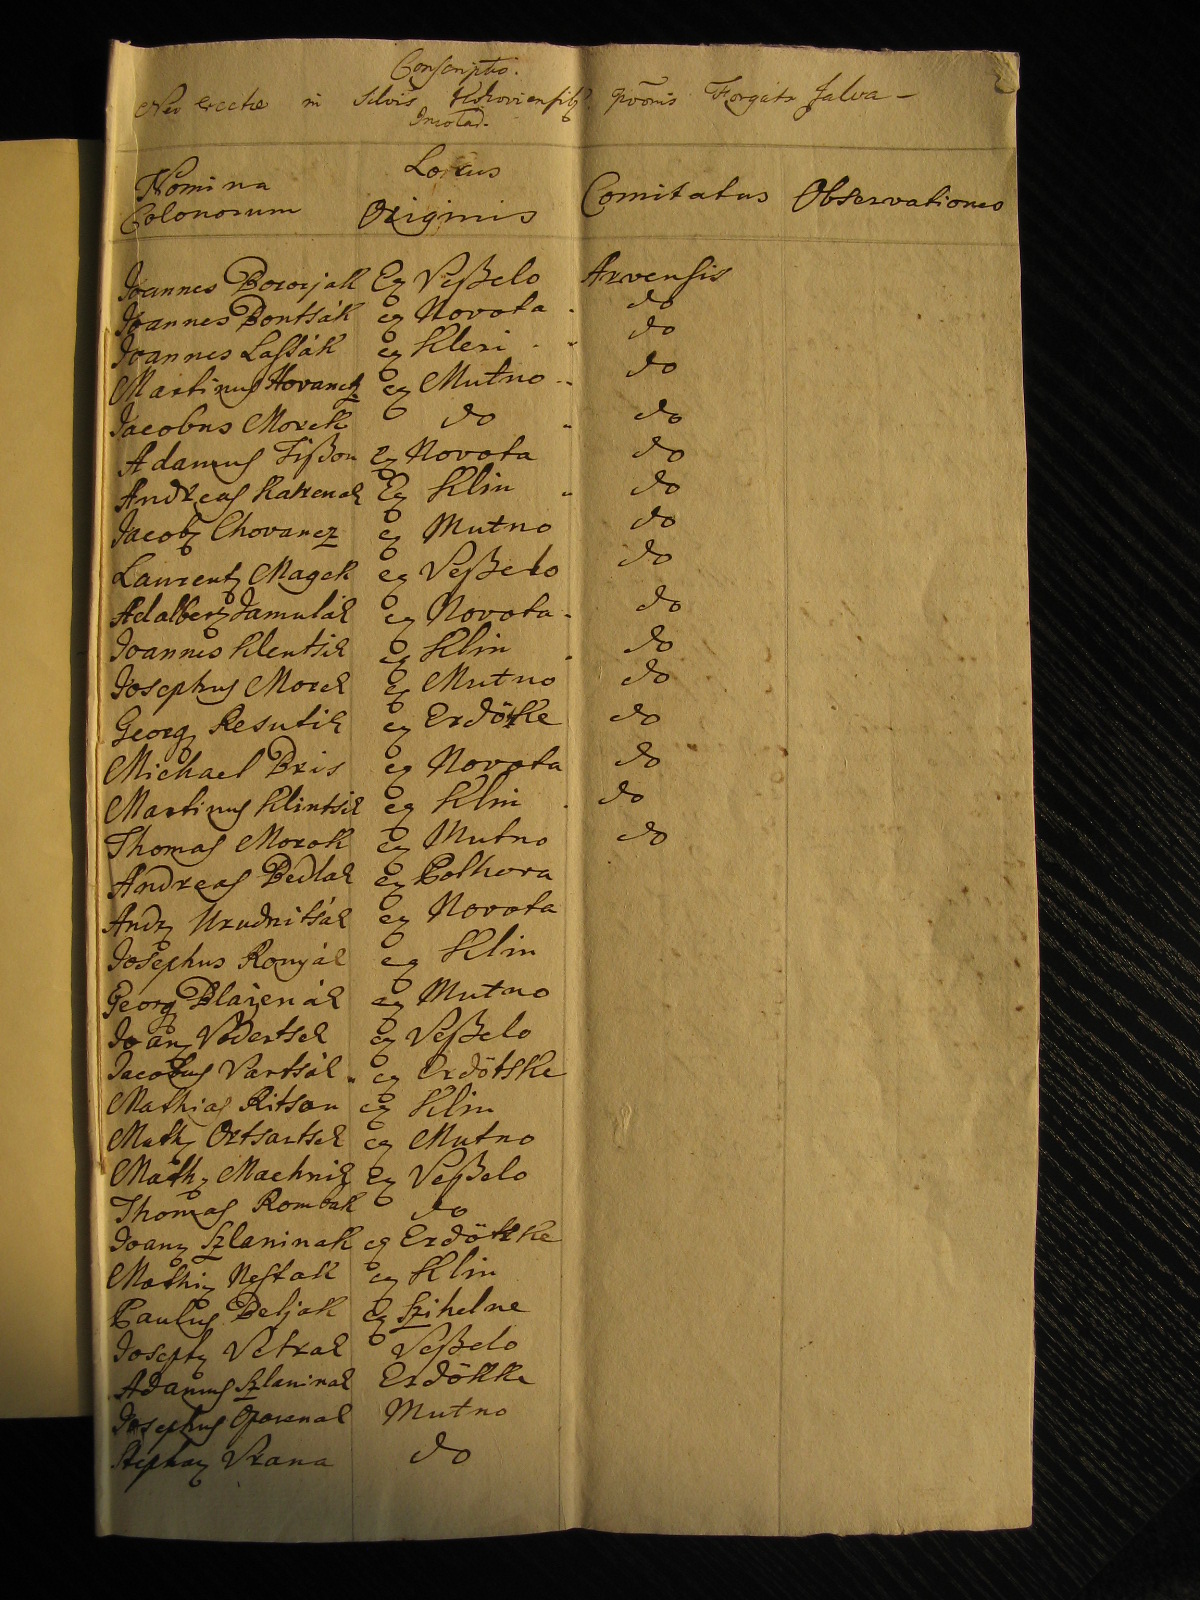 Conscriptio.
Neo Erectae in Silvis Kokoviensibq Forgats falva -
Incolar.
Nomina Colonorum Locus Originis Comitatus Observationes
Joannes Bororjak Ex Veßelo Arvensis
Joannes Bontsák ex Novota do
Joannes Lassák ex Kleni do
Martinus Hovancz ex Mutno do
Jacobus Morek do do
Adamus Fißon Ex Novota do
Andreas Katrenak Ex Klin do
Jacobq Chovancz ex Mutno do
Laurentq Magek ex Veßelo do
Adalbertq Jamulák ex Novota do
Joannes Klentsik ex Klin do
Josephus Morek ex Mutno do
Georgq Resutik ex Erdötke do
Michael Bris ex Novota do
Martinus Klintsik ex Klin do
Thomas Morok ex Mutno do
Andreas Bedlak ex Polhora
Andr Hrudnitsák ex Novota
Josephus Ronyák ex Klin
Georg Blaženák ex Mutno
Joanq Vodertsek ex Veßelo
Jacobus Vartsák ex Erdötske
Mathias Kitson ex Klin
Math Ortsartsek ex Mutno
Math Machnik Ex Veßelo
Thomas Rombak do
Joanq Szlaninak ex Erdötske
Mathiq Nestak ex Klin
Paulus Beljak Ex Szihelne
Josephq Vetrak Veßelo
Adamus Szlaninak Erdökke
Josephus Oporenak Mutno
Stephanq Vrana do